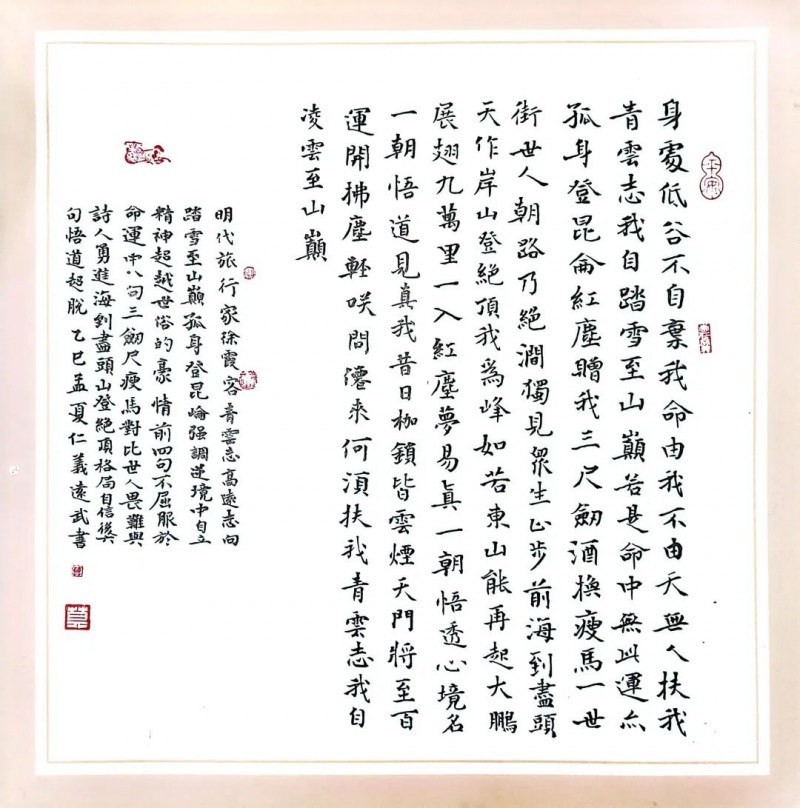 身處低谷不自棄我命由我不由天無人扶我
青雲志我自踏雪至山巔若是命中無此運亦
孤身登昆侖紅塵贈我三尺劒酒換瘦馬一世
街世人朝路乃絕澗獨見眾生止步前海到盡頭
天作岸山登絕頂我為峰如若東山能再起大鵬
展翅九萬里一入紅塵夢易真一朝悟透心境名
一朝悟道見真我昔日枷鎖皆雲煙天門將至百
運開拂塵輕咲問德來何須扶我青雲志我自
凌雲至山巔
明代旅行家徐霞客青雲志高遠志向
踏雪至山巔孤身登昆崙强調逆境中自立
精神超越世俗的豪情前四句不屈服於
命運中八句三劒尺瘦馬對比世人畏難與
詩人勇進海到盡頭山登絕頂格局自信後六
句悟道超脫 乙巳孟夏仁義遠武書